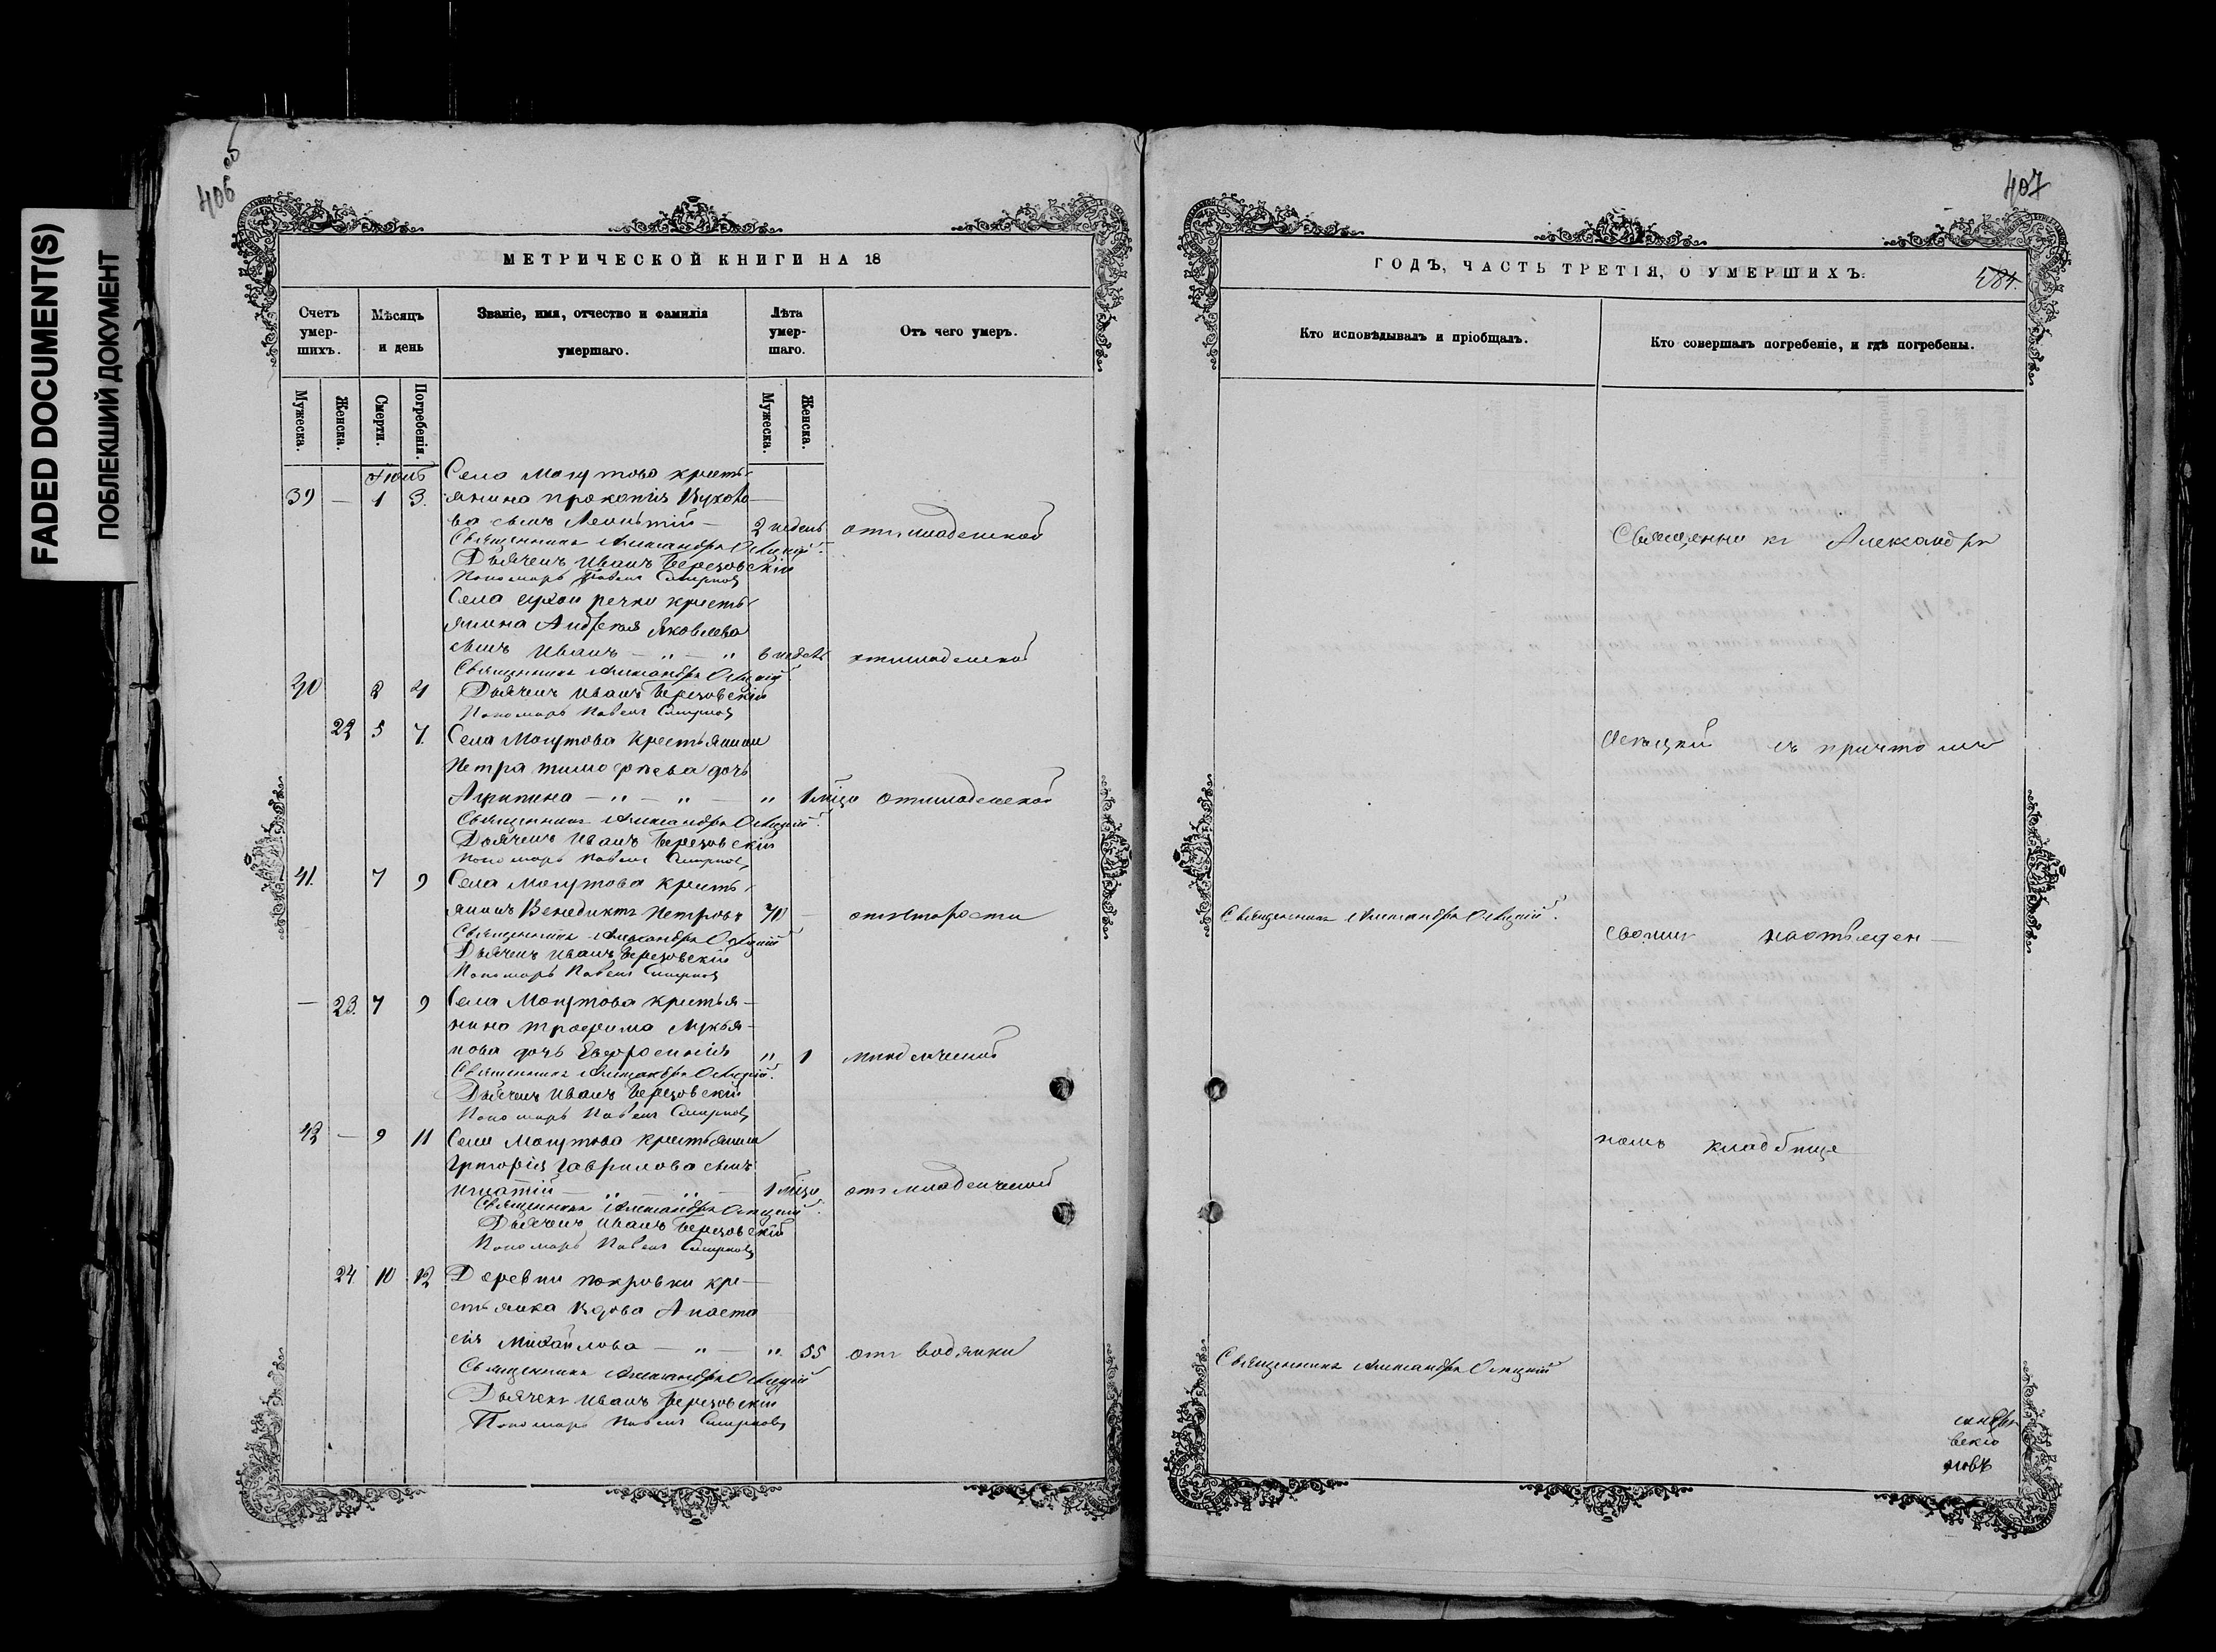 FADED DOCUMENT(S)
ПОБЛЕКШИЙ ДОКУМЕНТ
406 об
МЕТРИЧЕСКОЙ КНИГИ НА 18
Счетъ умер-шихъ.
Мѣсяцъ и день
Званіе, имя, отчество и фамилія умершаго.
Лѣта умер-шаго.
Отъ чего умеръ.
Мужеска.
Женска.
Смерти.
Погребенія.
Мужеска.
Женска.
Села Могутова кресть
39 — 1 3. янина Прокопія
ва сынъ Леонтій — 2 недель отъ младенской
Священникъ Александръ
Дьячекъ Иванъ Березовскій
Пономарь Павелъ Смирновъ
Села Сухой речки кресть
янина Андрея Яковлева
сынъ Иванъ — „ — „ 6 недель отъ младенской
Священникъ Александръ
40 2 4 Дьячекъ Иванъ Березовскій
Пономарь Павелъ Смирновъ
22 5 7. Села Могутова крестьянина
Петра Тимофеева дочь
Агрипина — „ — „ — „ 1 отъ младенской
Священникъ Александръ
Дьячекъ Иванъ Березовскій
Пономарь Павелъ Смирновъ
41. 7 9 Села Могутова кресть
янинъ Венедиктъ Петровъ 70 — отъ старости
Священникъ Александръ
Дьячекъ Иванъ Березовскій
Пономарь Павелъ Смирновъ
— 23. 7 9 Села Могутова крестья—
нина Трофима Лукья—
нова дочь Евфросинія „ 1 младенческой
Священникъ Александръ
Дьячекъ Иванъ Березовскій
Пономарь Павелъ Смирновъ
42 — 9 11 Села Могутова крестьянина
Григорія Гаврилова сынъ
Игнатій — „ — „ — 1 отъ младенческой
Священникъ Александръ
Дьячекъ Иванъ Березовскій
Пономарь Павелъ Смирновъ
24 10 12 Деревни Покровки кре—
стьянка вдова Анаста
сія Михайлова — „ — „ 55 отъ водянки
Священникъ Александръ
Дьячекъ Иванъ Березовскій
Пономарь Павелъ Смирновъ
407
ГОДЪ, ЧАСТЬ ТРЕТІЯ, О УМЕРШИХЪ.
Кто исповѣдывалъ и пріобщалъ.
Кто совершалъ погребеніе, и гдѣ погребены.
Священникъ Александръ
съ причтомъ
Священникъ Александръ
своимъ
номъ кладбище
Священникъ Александръ